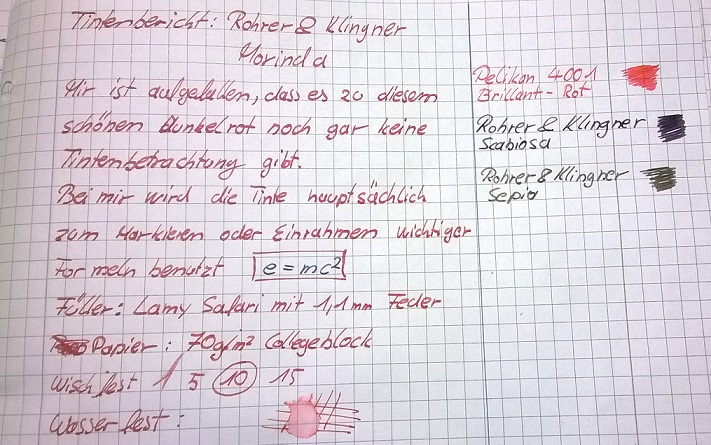 Tintenbericht: Rohrer & Klingner
Morinda
Mir ist aufgefallen, dass es zu diesem
schönen Dunkelrot noch gar keine
Tintenbetrachtung gibt.
Bei mir wird die Tinte hauptsächlich
zum Markieren oder Einrahmen wichtiger
Formeln benutzt e = mc²
Füller: Lamy Safari mit 1,1mm Feder
Papier: 70g/m² Collegeblock
Wischfest 1 5 10 15
Wasserfest:
Pelikan 4001
Brillant-Rot
Rohrer & Klingner
Scabiosa
Rohrer & Klingner
Sepia